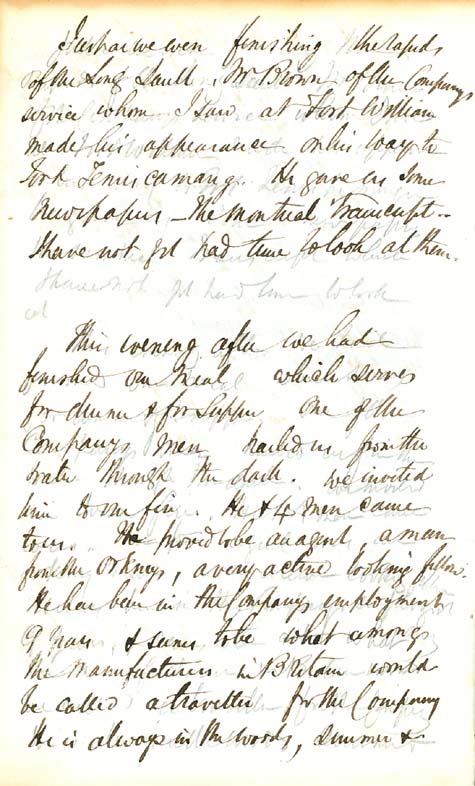 Just as we were finishing the rapids
of the Long Sault, Mr Brown of the Companys
service whom I saw at Fort William
made his appearance on his way to
Fort Temiscamang. He gave us some
Newspapers – The Montreal Transcript –
I have not yet had time to look at them.
This evening after we had
finished our meal which serves
for dinner & for supper one of the
Companys men hailed us from the
water through the dark. We invited
him to our fire. He & 4 men came
to us. He proved to be an agent, a man
from the Orkneys, a very active looking fellow
He has been in the Companys employment
9 years & seems to be what among
the manufacturers in Britain would
be called a traveller for the Company
He is always in the woods, summer &